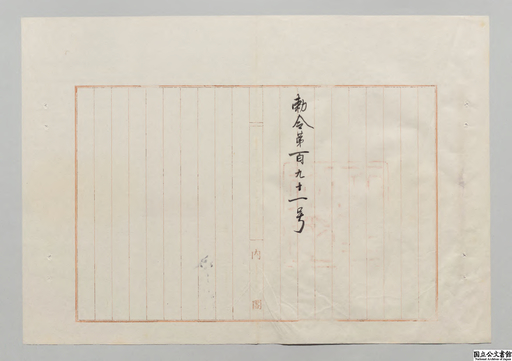 勅令第百九十一号
内閣
国立公文書館
National Archives of Japan